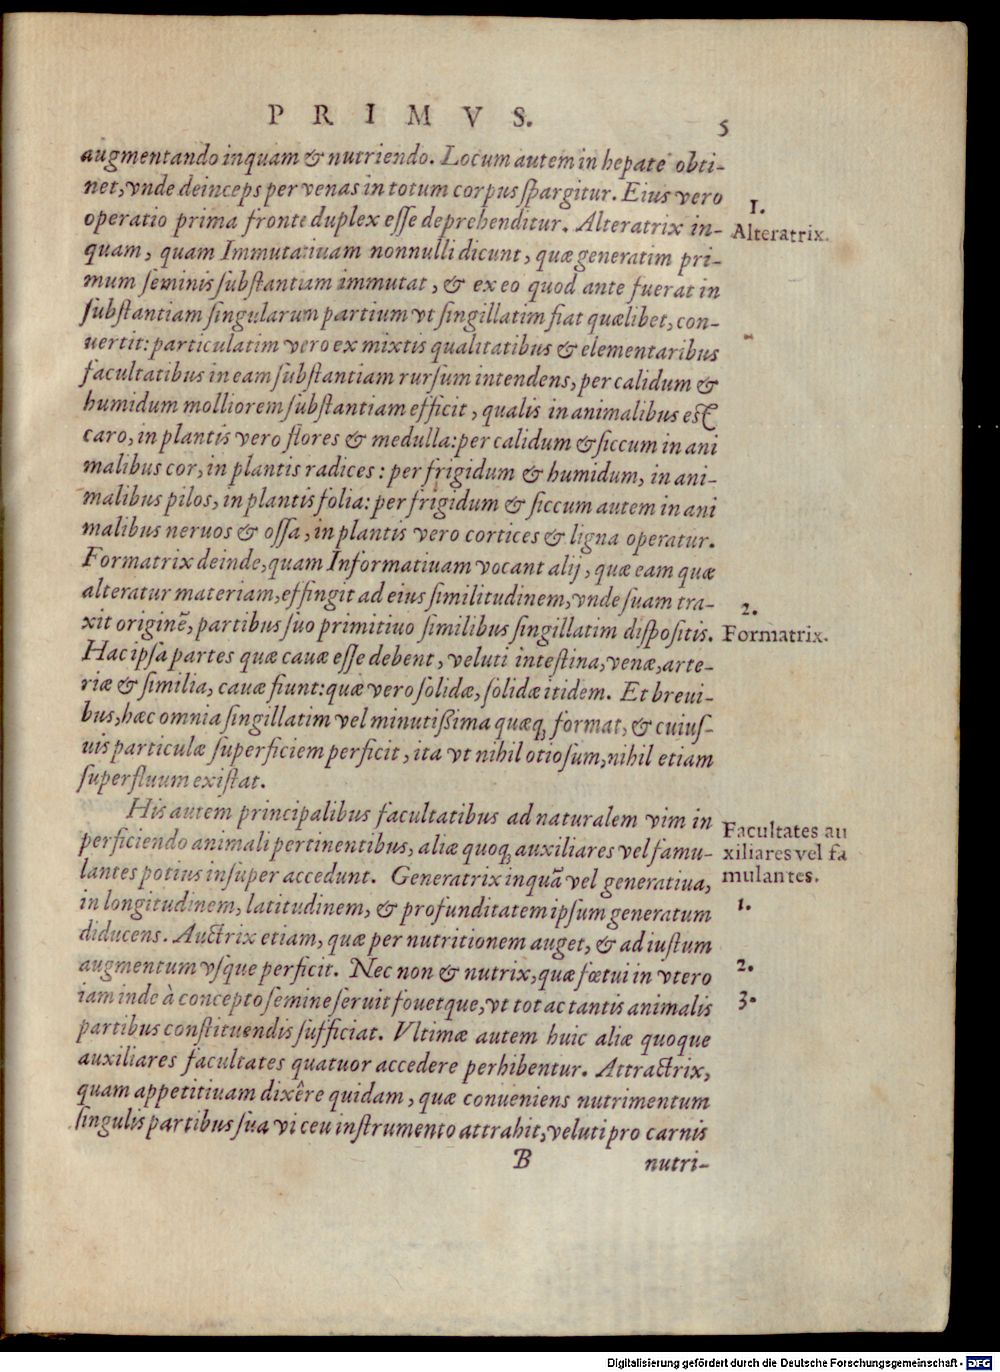 PRIMVS.
5
augmentando inquam & nutriendo. Locum autem in hepate obti-
net, vnde deinceps per venas in totum corpus spargitur. Eius vero
operatio prima fronte duplex esse deprehenditur. Alteratrix in-
quam, quam Immutatiuam nonnulli dicunt, quæ generatim pri-
mum seminis substantiam immutat, & ex eo quod ante fuerat in
substantiam singularum partium vt singillatim fiat quælibet, con-
uertit: particulatim vero ex mixtis qualitatibus & elementaribus
facultatibus in eam substantiam rursum intendens, per calidum &
humidum molliorem substantiam efficit, qualis in animalibus est
caro, in plantis vero flores & medulla: per calidum & siccum in ani
malibus cor, in plantis radices: per frigidum & humidum, in ani-
malibus pilos, in plantis folia: per frigidum & siccum autem in ani
malibus neruos & ossa, in plantis vero cortices & ligna operatur.
Formatrix deinde, quam Informatiuam vocant alij, quæ eam quæ
alteratur materiam, effingit ad eius similitudinem, vnde suam tra-
xit originē, partibus suo primitiuo similibus singillatim dispositis.
Hac ipsa partes quæ cauæ esse debent, veluti intestina, venæ, arte-
riæ & similia, cauæ fiunt: quæ vero solidæ, solidæ itidem. Et breui-
bus, hæc omnia singillatim vel minutißima quæq; format, & cuius-
uis particulæ superficiem perficit, ita vt nihil otiosum, nihil etiam
superfluum existat.
His autem principalibus facultatibus ad naturalem vim in
perficiendo animali pertinentibus, aliæ quoq; auxiliares vel famu-
lantes potius insuper accedunt. Generatrix inquā vel generatiua,
in longitudinem, latitudinem, & profunditatem ipsum generatum
diducens. Auctrix etiam, quæ per nutritionem auget, & ad iustum
augmentum vsque perficit. Nec non & nutrix, quæ fœtui in vtero
iam inde à concepto semine seruit fouetque, vt tot ac tantis animalis
partibus constituendis sufficiat. Vltimæ autem huic aliæ quoque
auxiliares facultates quatuor accedere perhibentur. Attractrix,
quam appetitiuam dixêre quidam, quæ conueniens nutrimentum
singulis partibus sua vi ceu instrumento attrahit, veluti pro carnis
B
nutri-
1.
Alteratrix.
2.
Formatrix.
Facultates au
xiliares vel fa
mulantes.
1.
2.
3.
Digitalisierung gefördert durch die Deutsche Forschungsgemeinschaft - DFG